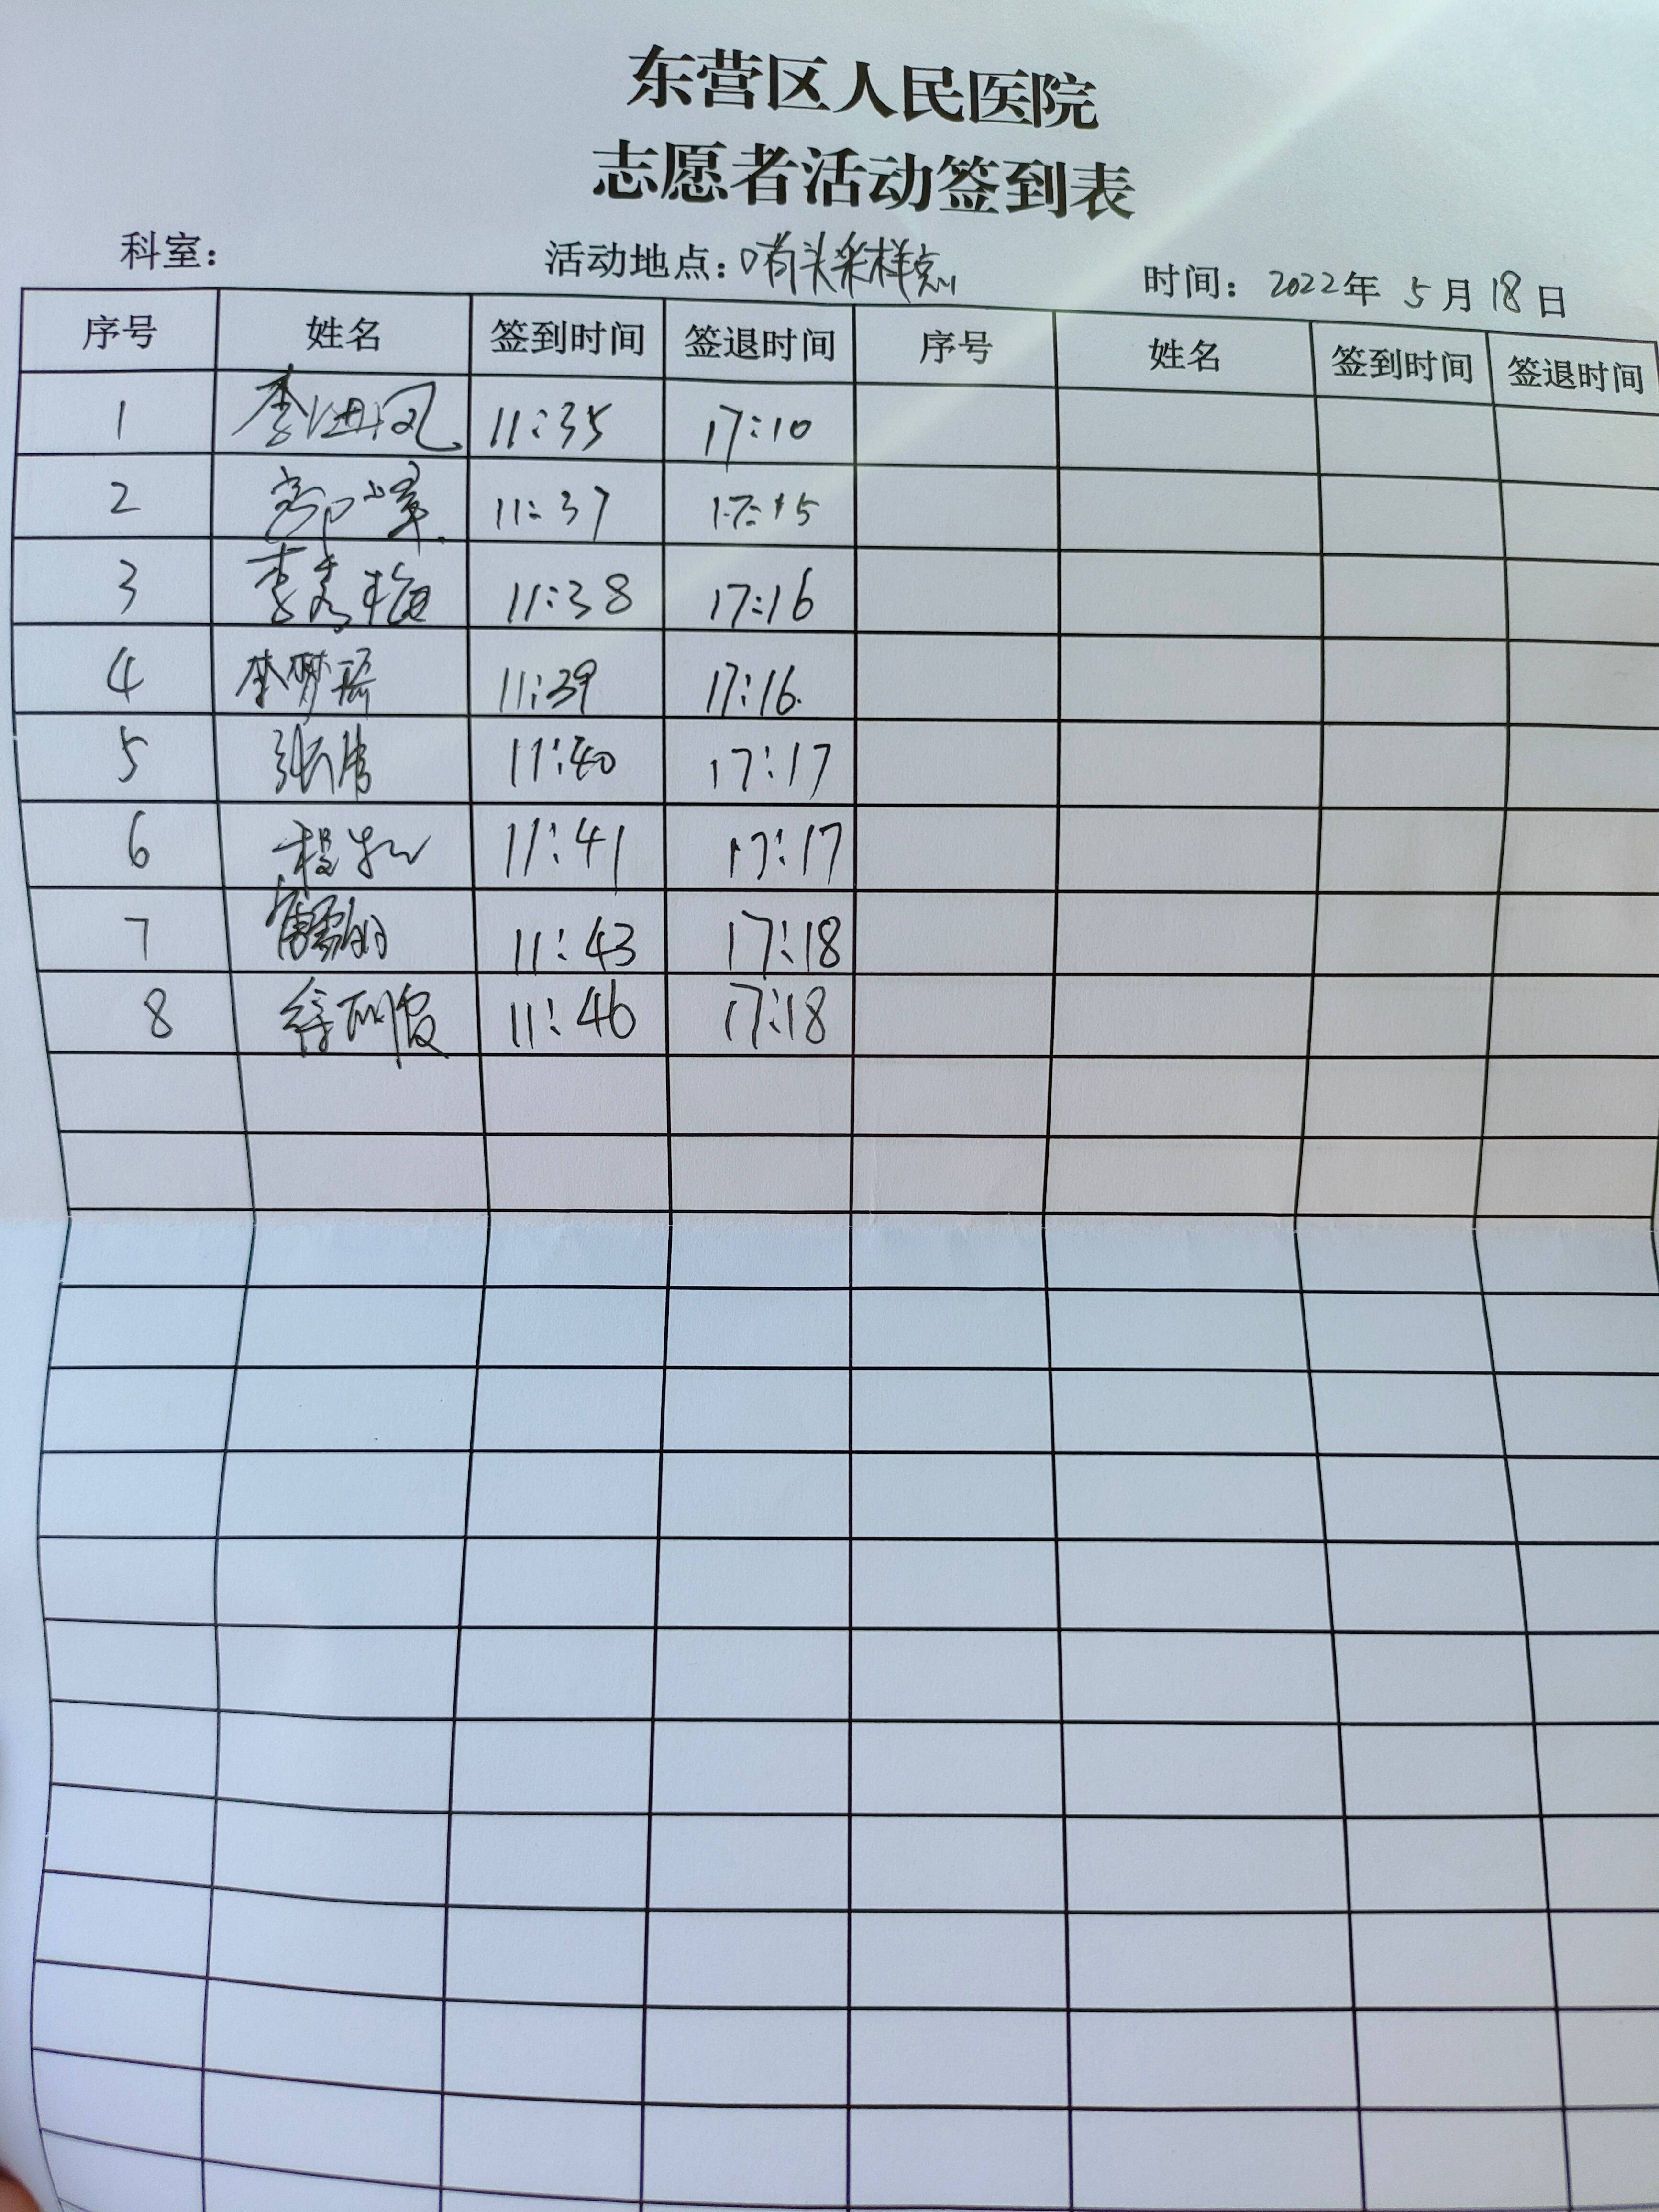 东营区人民医院
志愿者活动签到表
科室： 活动地点：哨头采样点 时间：2022年 5月18日
序号 姓名 签到时间 签退时间 序号 姓名 签到时间 签退时间
1 李进凤 11:35 17:10
2 11:37 17:15
3 李秀梅 11:38 17:16
4 李梦瑶 11:39 17:16.
5 张倩 11:40 17:17
6 程 11:41 17:17
7 11:43 17:18
8 11:46 17:18